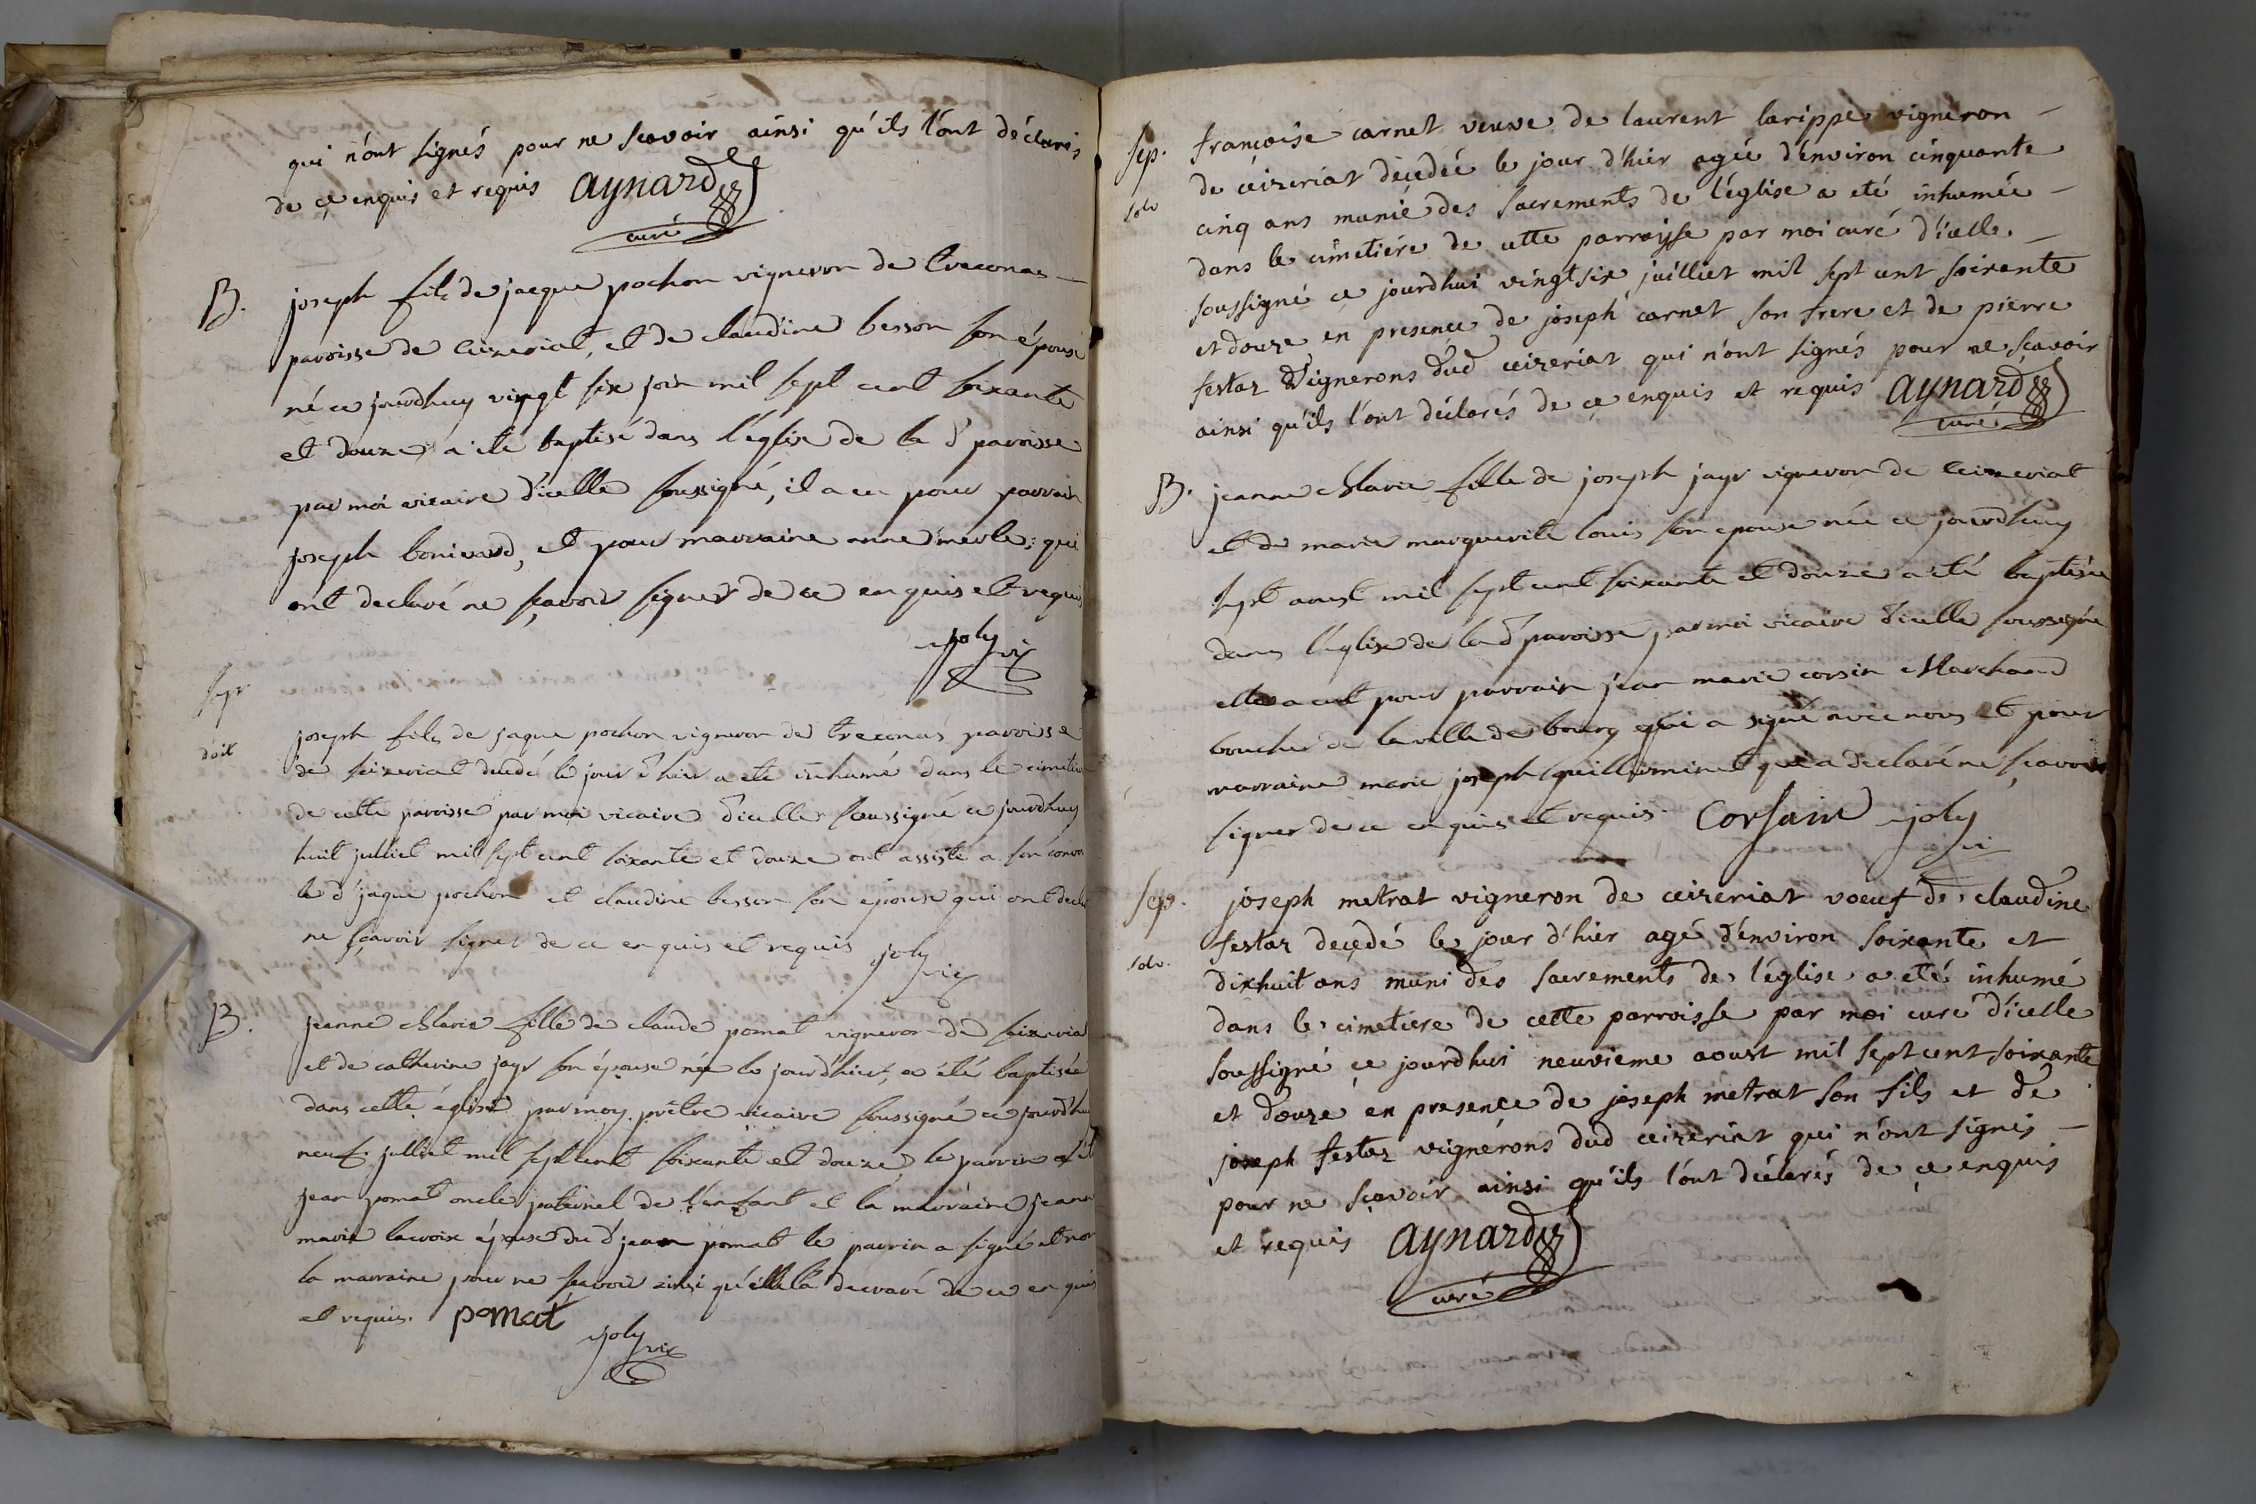 qui n'ont signés pour ne scavoir ainsi qu'ils l'ont déclarés
de ce enquis et requis aynard
curé
B. joseph fils de jacque pochon vigneron de treconas
paroisse de Ceizeriat, et de claudine besson son épouse
né ce jourdhuy vingt six join mil sept cent soixante
et douze a été baptisé dans l'église de la d. paroisse
par moi vicaire d'icelle soussigné, il a eu pour parrain
joseph bonivard, et pour marraine anne merle; qui
ont declaré ne sçavoir signer de ce enquis et requis
joly vic
sep
doit
joseph fils de jaque pochon vigneron de treconas paroisse
de seizeriat decedé le jour d'hier a ete inhumé dans le cimetiere
de cette paroisse par moi vicaire d'icelle soussigné ce jourdhuy
huit julliet mil sept cent soixante et douze ont assisté a son convoi
le d. jaque pochon et claudine besson son épouse qui ont declaré
ne sçavoir signer de ce enquis et requis joly vic
B. jeanne Marie fille de claude pomat vigneron de seizeriat
et de catherine jayr son épouse née le jour d'hier, a été baptisée
dans cette église par moy prêtre vicaire soussigné ce jourd'hui
neuf julliet mil sept cent soixante et douze, le parrin a été
jean pomat oncle paternel de l'enfant et la marraine jeanne
marie lacroix épouse du d. jean pomat le parrin a signé et non
la marraine pour ne sçavoir ainsi qu'elle l'a decraré de ce enquis
et requis. pomat
joly vic
sep. françoise carnet veuve de laurent larippe vigneron
de ceizeriat décédée le jour d'hier agée d'environ cinquante
solv
cinq ans munie des sacrements de l'église a eté inhumée
dans le cimetiére de cette parroisse par moi curé d'icelle
soussigné ce jourdhui vingt six juilliet mil sept cent soixante
et douze en presence de joseph carnet son frere et de pierre
festaz Vignerons dud ceizeriat qui n'ont signés pour ne scavoir
ainsi qu'ils l'ont déclarés de ce enquis et requis aynard
curé
B. jeanne Marie fille de joseph jayr vigneron de Ceizeriat
et de marie marguerite louis son epouse née ce jourdhuy
sept aoust mil sept cent soixante et douze a été baptisée
dans l'église de la d. paroisse par moi vicaire d'icelle soussigné
elle a eut pour parrain jean marie corsin Marchand
boucher de la ville de bourg qui a signé avec nous et pour
marraine marie joseph guillerminet qui a declaré ne sçavoir
signer de ce enquis et requis. Corsain joly
vi
Sep. joseph metrat vigneron de ceizeriat voeuf de claudine
festaz decedé le jour d'hier agé d'environ soixante et
solv.
dixhuit ans muni des sacrements de l'église a eté inhumé
dans le cimetiere de cette parroisse par moi curé d'icelle
soussigné ce jourdhui neuvieme aoust mil sept cent soixante
et douze en presence de joseph metrat son fils et de
joseph festaz vignérons dud ceizeriat qui n'ont signés
pour ne sçavoir ainsi qu'ils l'ont déclarés de ce enquis
et requis aynard
curé